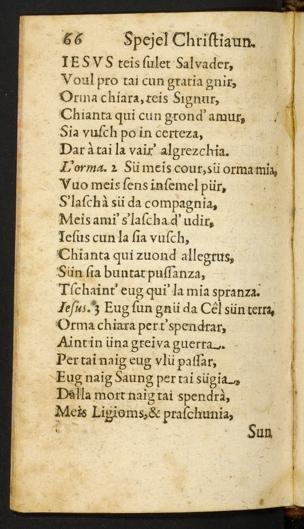 66 Spejel Chriſtiaun.
IESVS teis ſulet Salvader,
Voul pro tai cun gratia gnir,
Orma chiara, teis Signur,
Chianta qui cun grond' amur,
Sia vuſch po in certeza,
Dar à tai la vair' algrezchia.
L'orma. 2 Sü meis cour, sü orma mia,
Vuo meis ſens inſemel pür,
S'laſchà sü da compagnia,
Meis ami' s'laſcha d' udir,
Ieſus cun la ſia vuſch,
Chianta qui zuond allegrus,
Sün ſia buntat puſſanza,
Tſchaint' eug qui' la mia spranza.
Ieſus. 3 Eug ſun gnü da Cêl sün terra,
Orma chiara per t'spendrar,
Aint in üna greiva guerra.
Per tai naig eug vlü paſſar,
Eug naig Saung per tai sügia,
Dalla mort naig tai spendrà,
Meis Ligioms, & praſchunia,
Sun